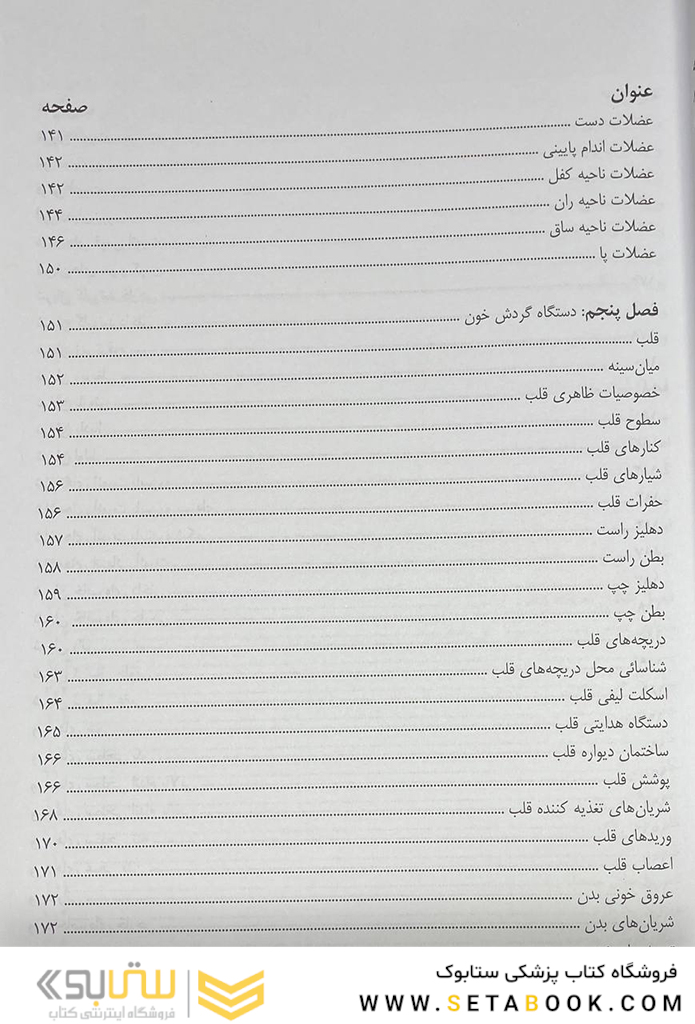 عنوان
صفحه
عضلات دست ۱۴۱
عضلات اندام پایینی ۱۴۲
عضلات ناحیه کفل ۱۴۲
عضلات ناحیه ران ۱۴۴
عضلات ناحیه ساق ۱۴۶
عضلات پا ۱۵۰
فصل پنجم: دستگاه گردش خون ۱۵۱
قلب ۱۵۱
میان‌سینه ۱۵۲
خصوصیات ظاهری قلب ۱۵۳
سطوح قلب ۱۵۴
کنارهای قلب ۱۵۴
شیارهای قلب ۱۵۶
حفرات قلب ۱۵۶
دهلیز راست ۱۵۷
بطن راست ۱۵۸
دهلیز چپ ۱۵۹
بطن چپ ۱۶۰
دریچه‌های قلب ۱۶۰
شناسائی محل دریچه‌های قلب ۱۶۳
اسکلت لیفی قلب ۱۶۴
دستگاه هدایتی قلب ۱۶۵
ساختمان دیواره قلب ۱۶۶
پوشش قلب ۱۶۶
شریان‌های تغذیه کننده قلب ۱۶۸
وریدهای قلب ۱۷۰
اعصاب قلب ۱۷۱
عروق خونی بدن ۱۷۲
شریان‌های بدن ۱۷۲
فروشگاه کتاب پزشکی ستابوک
WWW.SETABOOK.COM
ستابوک
فروشگاه اینترنتی کتاب